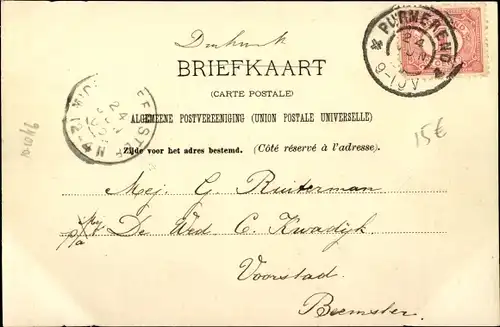 Drukwerk
BRIEFKAART
(CARTE POSTALE)
ALGEMEENE POSTVEREENIGING (UNION POSTALE UNIVERSELLE)
Zijde voor het adres bestemd. (Côté réservé à l'adresse.)
PURMEREND
24 JUN
9-10V
24 JUN
15€
Mej. G Ruiterman
p/a De Wed C. Kwadijk
Voorstad
Beemster.